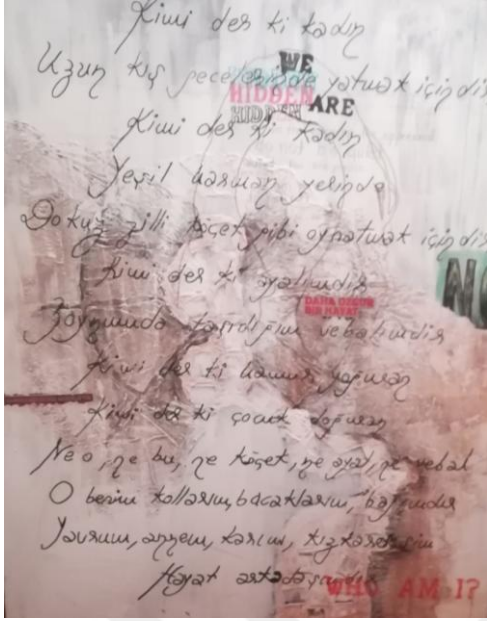 Kimi der ki kadın
Uzun kış gecelerinde yatmak içindir
WE
HIDDEN
HIDDEN
ARE
Kimi der ki kadın
Yeşil harman yerinde
Dokuz zilli köçek gibi oynatmak içindir
Kimi der ki ayalimdir
NO
DAHA ÖZGÜR
BİR HAYAT
Boynumda taşıdığım vebalimdir
Kimi der ki hamur yoğuran
Kimi der ki çocuk doğuran
Ne o, ne bu, ne köçek, ne ayal, ne vebal
O benim kollarım, bacaklarım, başımdır
Yavrum, annem, karım, kızkardeşim
Hayat arkadaşımdır
WHO AM I?